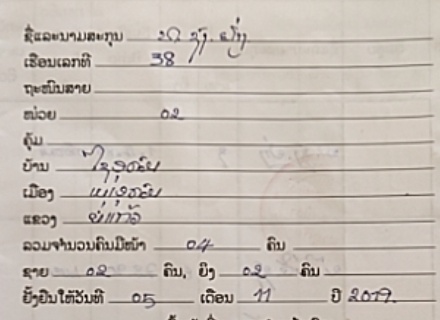 ຊື່ແລະນາມສະກຸນ
ເຮືອນເລກທີ 38
ຖະໜົນສາຍ
ໜ່ວຍ 02
ຄຸ້ມ
ບ້ານ
ເມືອງ
ແຂວງ ບໍ່ແກ້ວ
ລວມຈຳນວນຄົນມີໜ້າ 04 ຄົນ
ຊາຍ 02 ຄົນ, ຍິງ 02 ຄົນ
ຢັ້ງຢືນໃຫ້ວັນທີ 05 ເດືອນ 11 ປີ 2019.